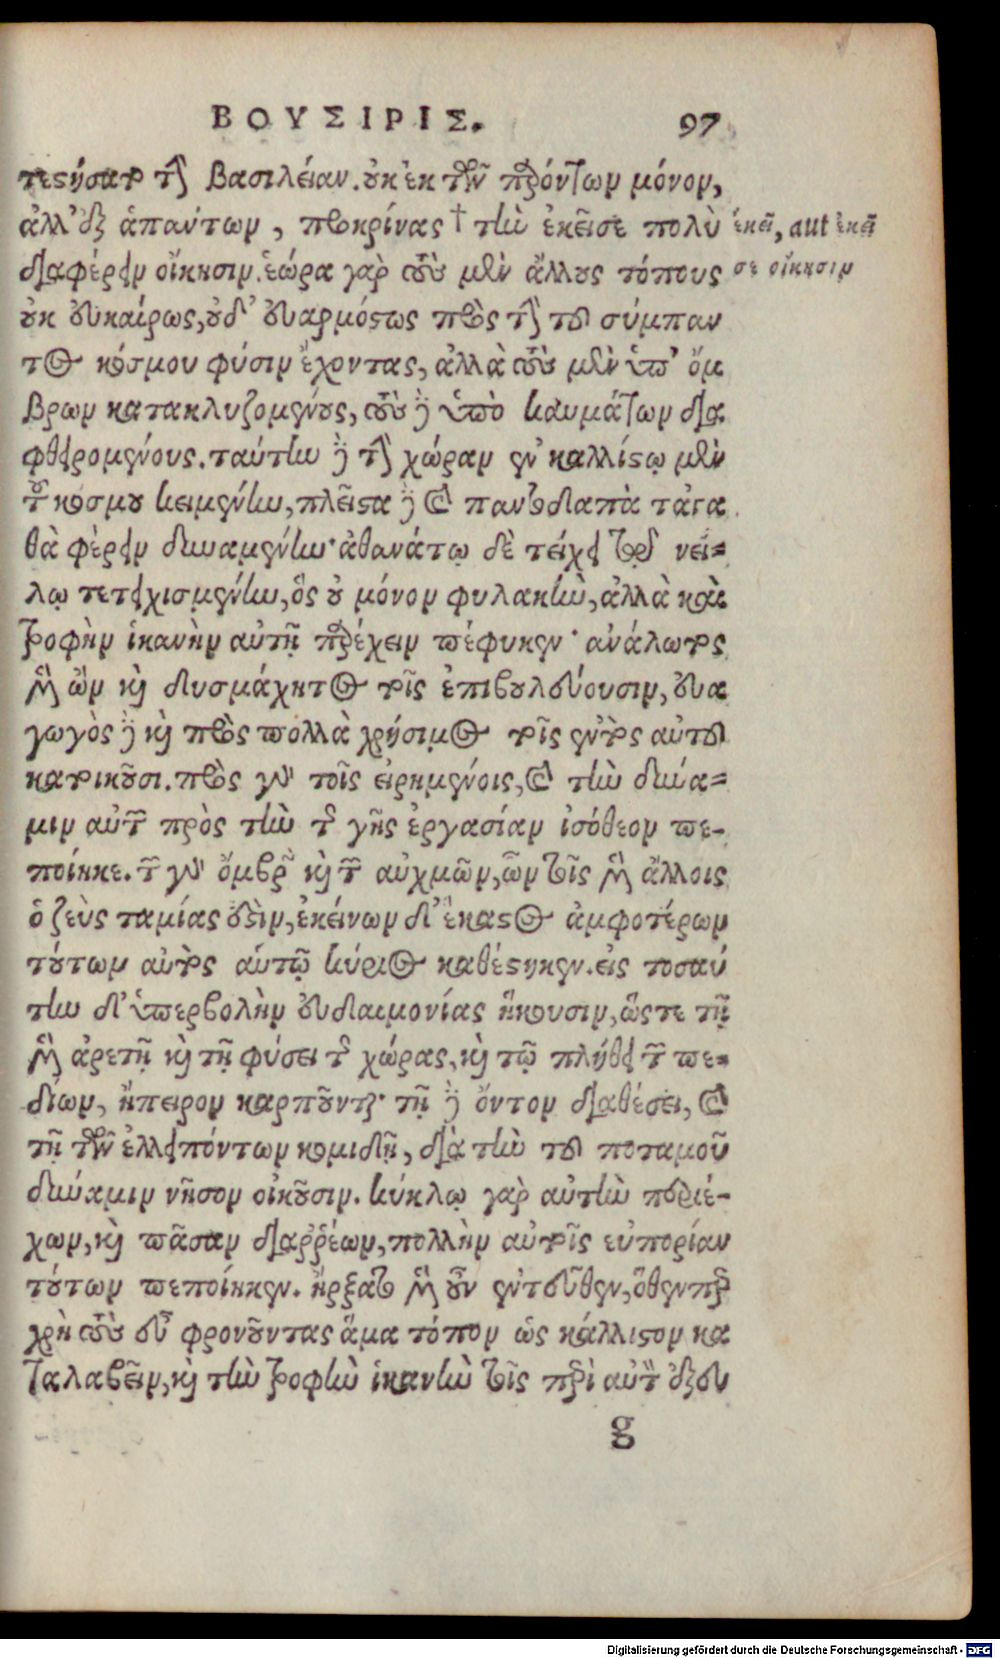 ΒΟΥΣΙΡΙΣ. 97
τεστήσατο τὴν βασιλείαν. οὐκ ἐκ τῶν παρόντων μόνον,
ἀλλ' ἐξ ἁπάντων, προκρίνας † τὴν ἐκεῖσε πολὺ
διαφέρειν οἴκησιν. ἑώρα γὰρ τοὺς μὲν ἄλλους τόπους
οὐκ εὐκαίρως, οὐδ' εὐαρμόστως πρὸς τὴν τοῦ σύμπαν
τος κόσμου φύσιν ἔχοντας, ἀλλὰ τοὺς μὲν ὑπ' ὄμ
βρων κατακλυζομένους, τοὺς δὲ ὑπὸ καυμάτων δια
φθειρομένους. ταύτην δὲ τὴν χώραν ἐν καλλίστῳ μὲν
τοῦ κόσμου κειμένην, πλεῖστα δὲ καὶ παντοδαπὰ τἀγα
θὰ φέρειν δυναμένην· ἀθανάτῳ δὲ τείχει τῷ νεί-
λῳ τετειχισμένην, ὃς οὐ μόνον φυλακὴν, ἀλλὰ καὶ
τροφὴν ἱκανὴν αὐτῇ παρέχειν πέφυκεν· ἀνάλωτος
μὲν ὢν καὶ δυσμάχητος τοῖς ἐπιβουλεύουσιν, εὐα
γωγὸς δὲ καὶ πρὸς πολλὰ χρήσιμος τοῖς ἐντὸς αὐτοῦ
κατοικοῦσι. πρὸς γὰρ τοῖς εἰρημένοις, καὶ τὴν δύνα-
μιν αὐτῶν πρὸς τὴν τῆς γῆς ἐργασίαν ἰσόθεον πε-
ποίηκε. τῶν γὰρ ὄμβρων καὶ τῶν αὐχμῶν, ὧν τοῖς μὲν ἄλλοις
ὁ ζεὺς ταμίας ἐστὶν, ἐκείνων δ' ἕκαστος ἀμφοτέρων
τούτων αὐτὸς αὑτῷ κύριος καθέστηκεν. εἰς τοσαύ
την δ' ὑπερβολὴν εὐδαιμονίας ἥκουσιν, ὥστε τῇ
μὲν ἀρετῇ καὶ τῇ φύσει τῆς χώρας, καὶ τῷ πλήθει τῶν πε-
δίων, ἤπειρον καρποῦνται· τῇ δὲ ὄντον διαθέσει, καὶ
τῇ τῶν ἐλλειπόντων κομιδῇ, διὰ τὴν τοῦ ποταμοῦ
δύναμιν νῆσον οἰκοῦσιν. κύκλῳ γὰρ αὐτὴν περιέ-
χων, καὶ πᾶσαν διαῤῥέων, πολλὴν αὐτοῖς εὐπορίαν
τούτων πεποίηκεν. ἤρξατο μὲν οὖν ἐντεῦθεν, ὅθεν περ
χρὴ τοὺς εὖ φρονοῦντας ἅμα τόπον ὡς κάλλιστον κα
ταλαβεῖν, καὶ τὴν τροφὴν ἱκανὴν τοῖς περὶ αὐτὸν ἐξευ
g
ἐκεῖ, aut ἐκεῖ
σε οἴκησιν
Digitalisierung gefördert durch die Deutsche Forschungsgemeinschaft - DFG